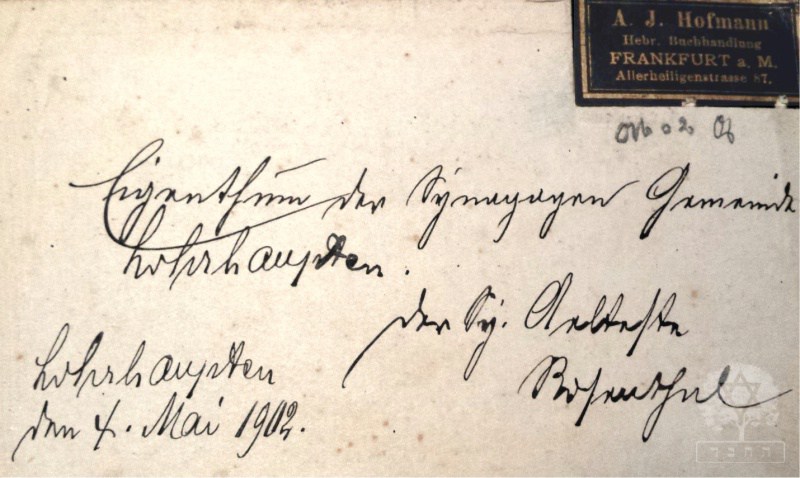 A. J. Hofmann
Hebr. Buchhandlung
FRANKFURT a. M.
Allerheiligenstrasse 87.
Eigenthum der Synagogen Gemeinde
Lohrhaupten.
der Sy. Aelteste
Rosenthal
Lohrhaupten
den 4. Mai 1902.